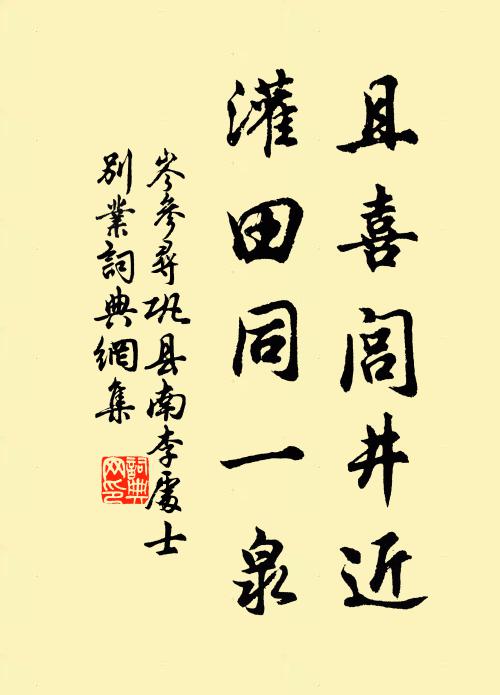 且喜闾井近
灌田同一泉
岑參尋巩县南李處士
别業詞典網集
詞典网印